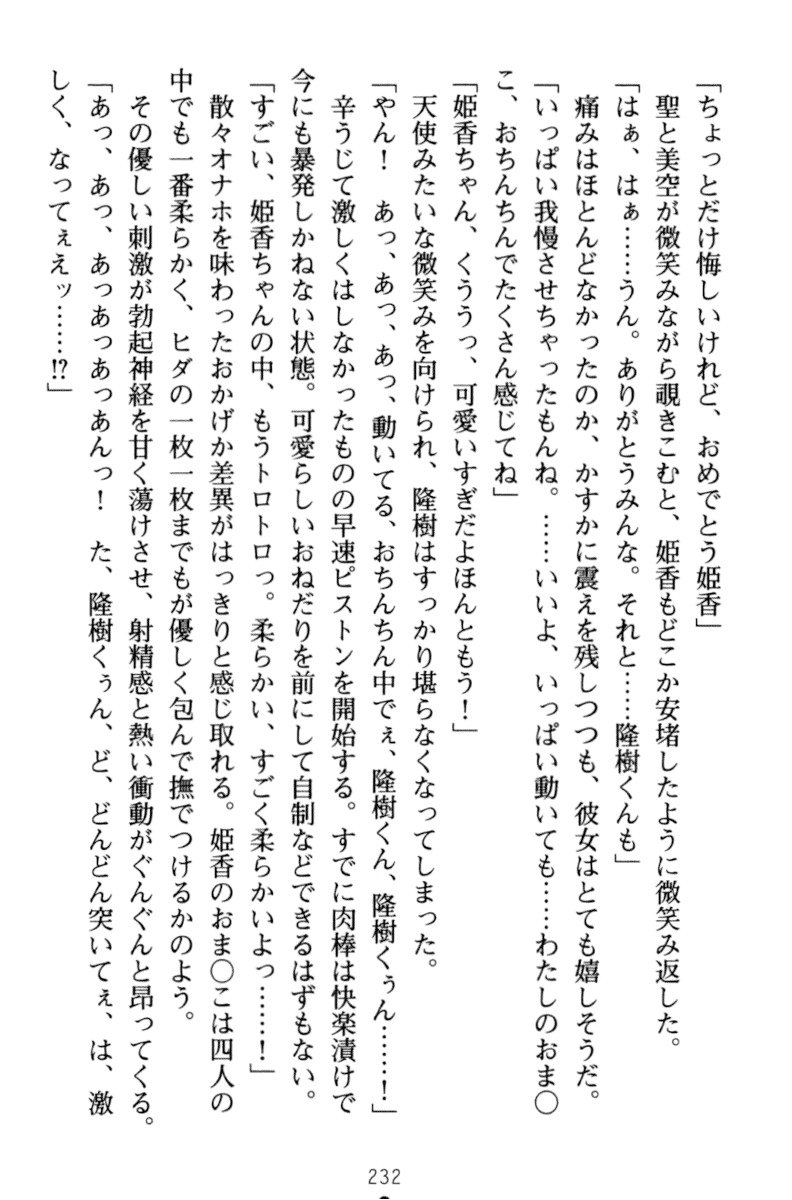 「ちょっとだけ悔しいけれど、おめでとう姫香」
聖と美空が微笑みながら覗きこむと、姫香もどこか安堵したように微笑み返した。
「はぁ、はぁ……うん。ありがとうみんな。それと……隆樹くんも」
痛みはほとんどなかったのか、かすかに震えを残しつつも、彼女はとても嬉しそうだ。
「いっぱい我慢させちゃったもんね。……いいよ、いっぱい動いても……わたしのおま〇
こ、おちんちんでたくさん感じてね」
「姫香ちゃん、くううっ、可愛いすぎだよほんともう！」
天使みたいな微笑みを向けられ、隆樹はすっかり堪らなくなってしまった。
「やん！　あっ、あっ、あっ、動いてる、おちんちん中でぇ、隆樹くん、隆樹くぅん……！」
辛うじて激しくはしなかったものの早速ピストンを開始する。すでに肉棒は快楽漬けで
今にも暴発しかねない状態。可愛らしいおねだりを前にして自制などできるはずもない。
「すごい、姫香ちゃんの中、もうトロトロっ。柔らかい、すごく柔らかいよっ……！」
散々オナホを味わったおかげか差異がはっきりと感じ取れる。姫香のおま〇こは四人の
中でも一番柔らかく、ヒダの一枚一枚までもが優しく包んで撫でつけるかのよう。
その優しい刺激が勃起神経を甘く蕩けさせ、射精感と熱い衝動がぐんぐんと昂ってくる。
「あっ、あっ、あっあっあっあんっ！　た、隆樹くぅん、ど、どんどん突いてぇ、は、激
しく、なってぇえッ……!?」
232